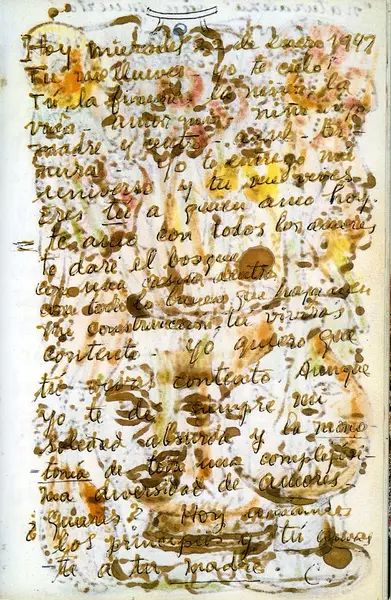 Hoy miercoles 22 de Enero 1947
Tu me llueves - yo te cielo
Tu la finura, la niñez, la
vida - amor mio - niño - viejo
madre y centro - azul - ter-
nura - Yo te entrego mi
universo y tu me vives
Eres tu a quien amo hoy.
te amo con todos los amores
te daré el bosque
con una casita adentro
con todo lo bueno que haya en
mi construccion, tu vivirás
contento - yo quiero que
tú vivas contento. Aunque
yo te dé siempre mi
soledad absurda y la mono
tonía de toda una complejisi-
ma diversidad de amores -
Quieres? Hoy amando
los principios y tú amas
-te a tu madre.